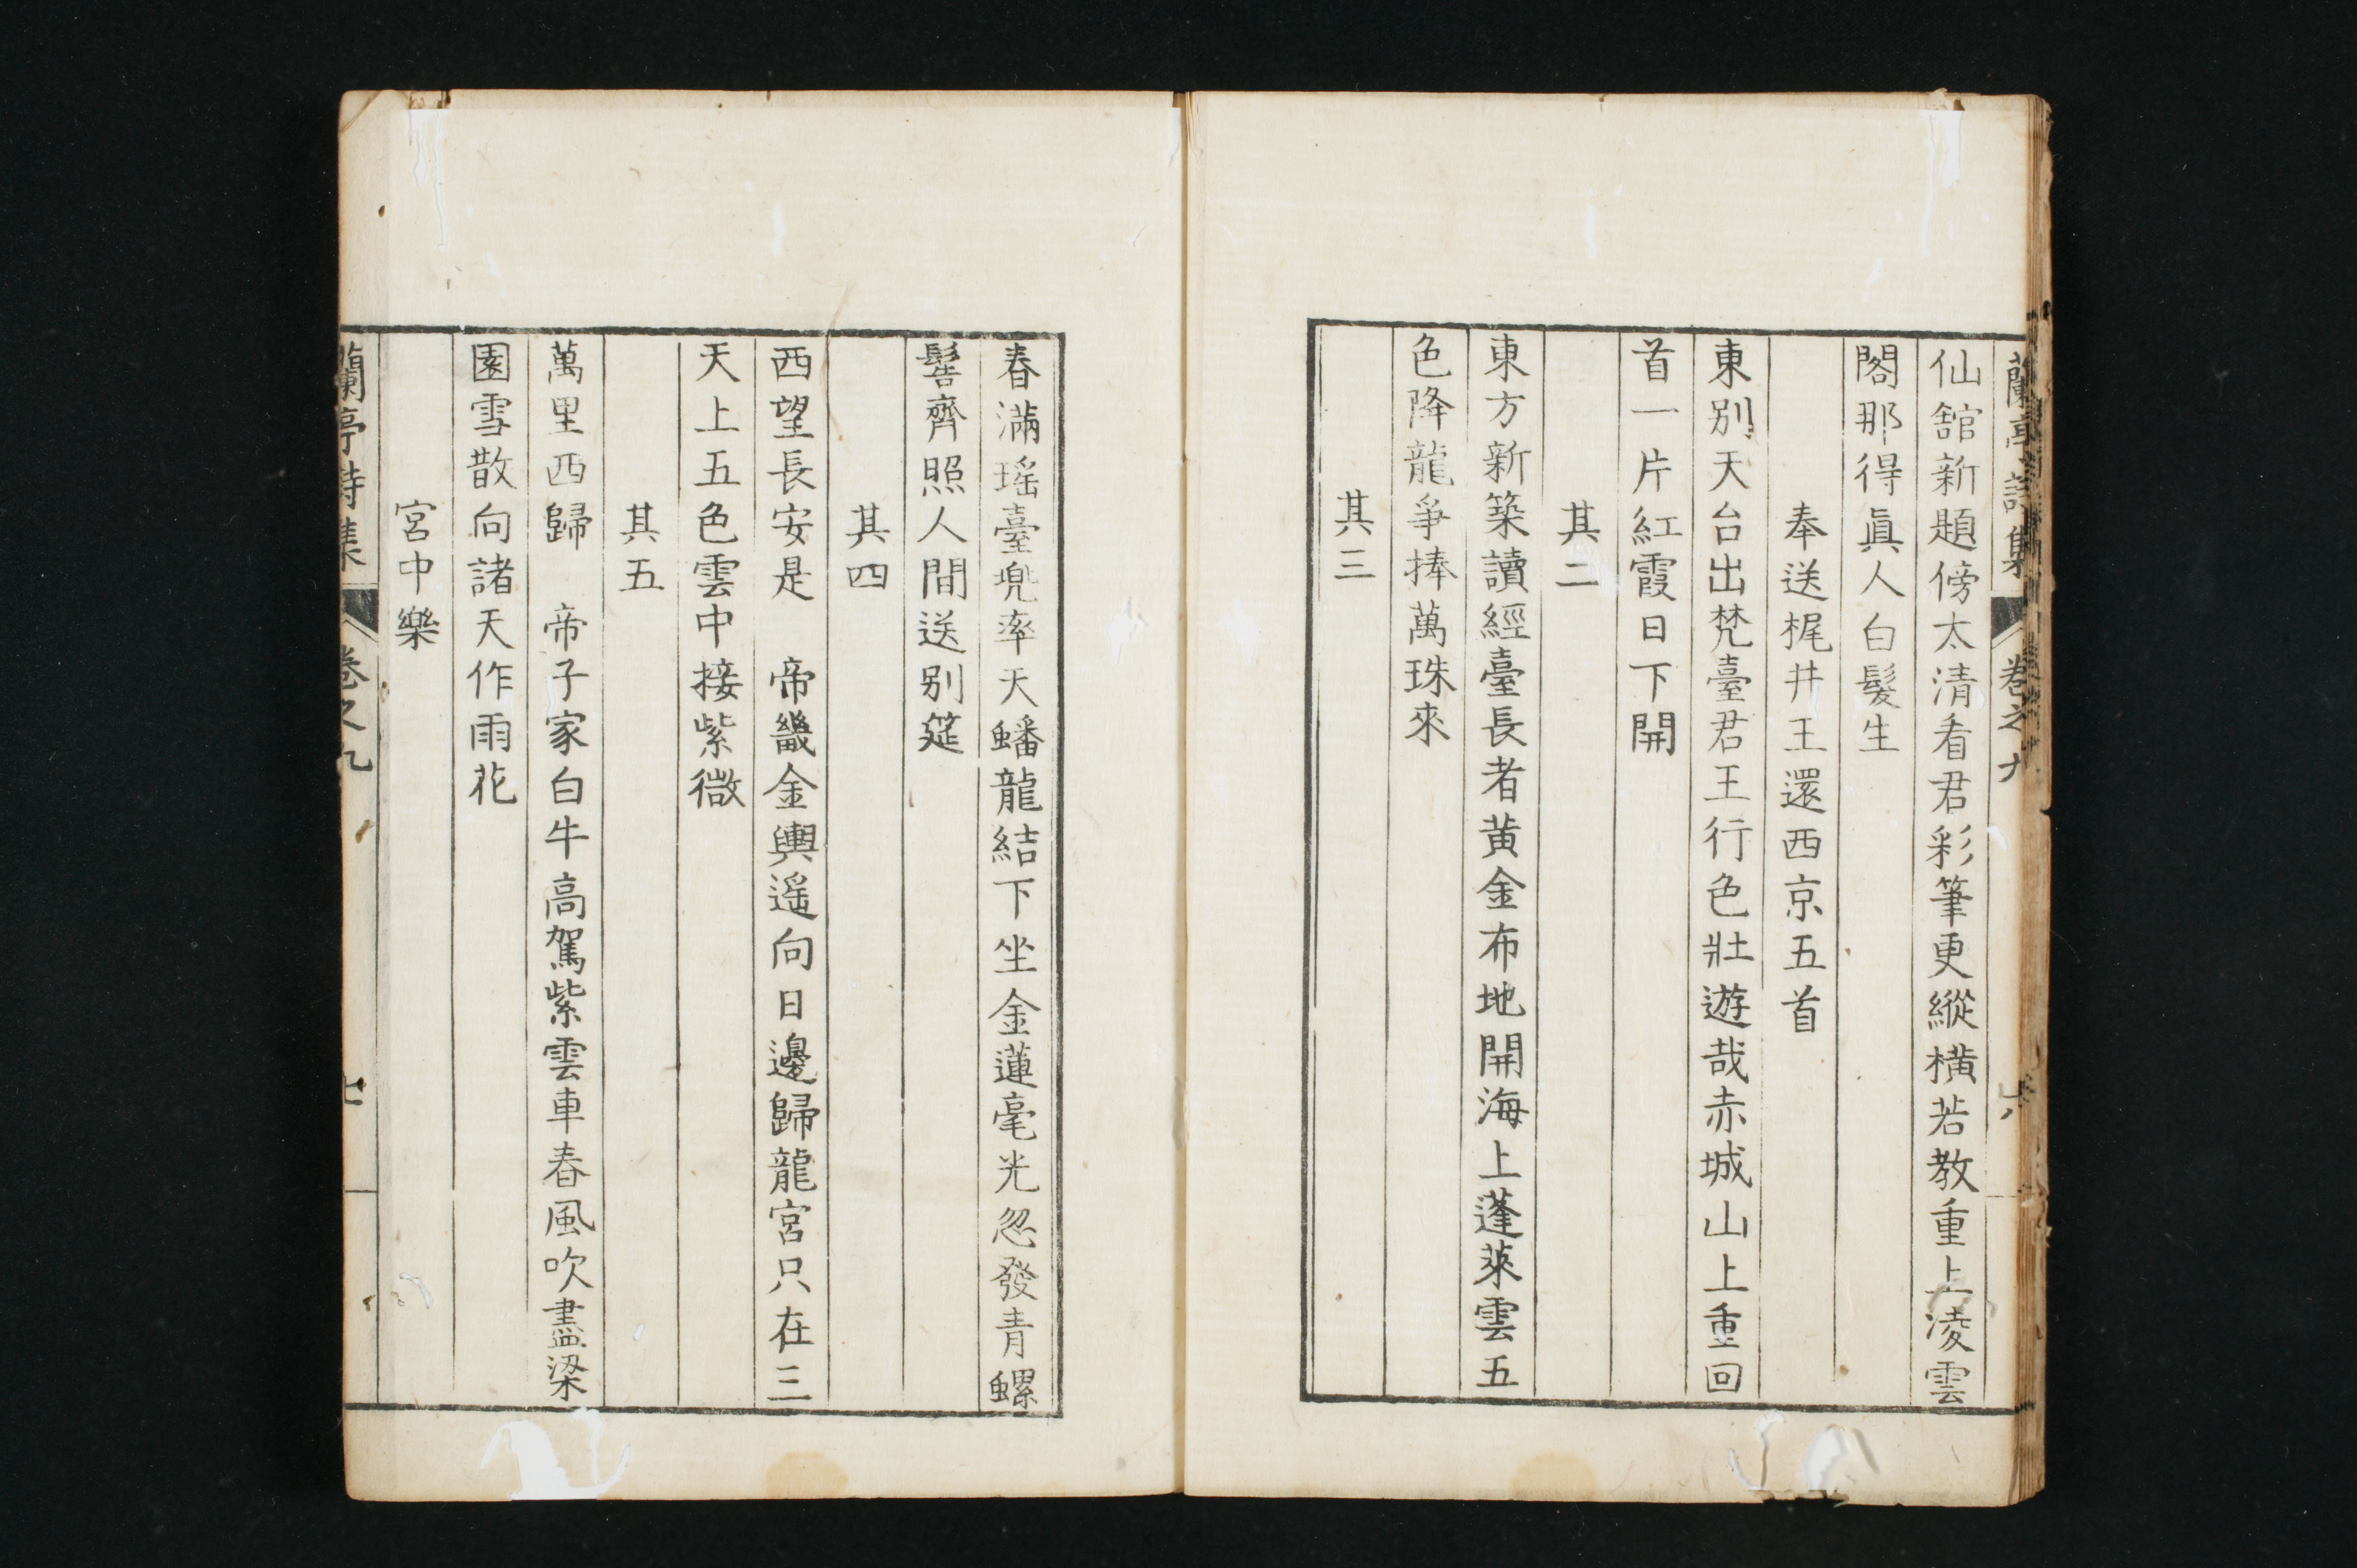 蘭亭詩集 卷之九 六
仙舘新題傍太清看君彩筆更縱橫若教重上凌雲
閣那得眞人白髮生
奉送梶井王還西京五首
東別天台出梵臺君王行色壯遊哉赤城山上重回
首一片紅霞日下開
其二
東方新築讀經臺長者黃金布地開海上蓬萊雲五
色降龍爭捧萬珠來
其三
春滿瑤臺兜率天蟠龍結下坐金蓮毫光忽發青螺
髻齊照人間送別筵
其四
西望長安是　帝畿金輿遙向日邊歸龍宮只在三
天上五色雲中接紫微
其五
萬里西歸　帝子家白牛高駕紫雲車春風吹盡梁
園雪散向諸天作雨花
宮中樂
蘭亭詩集 卷之九 七